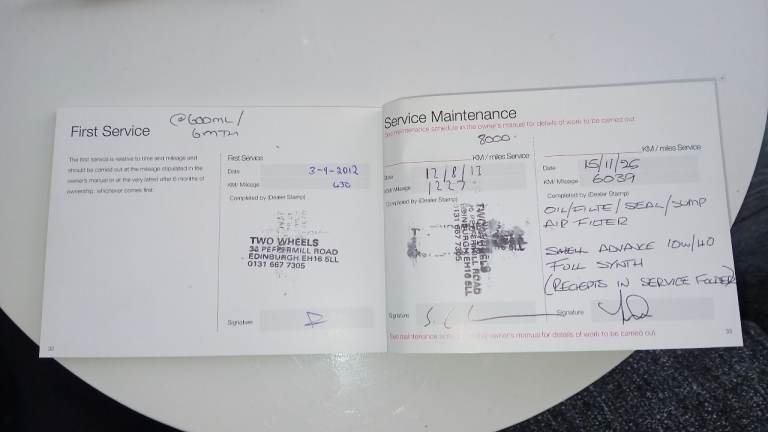 First Service
@600ML/
6MTH
The first service is relative to time and mileage and
should be carried out at the mileage stipulated in the
owner's manual or at the very latest after 6 months of
ownership, whichever comes first.
First Service
Date 3-9-2012
KM/ Mileage 630
Completed by (Dealer Stamp)
TWO WHEELS
36 PEFFERMILL ROAD
EDINBURGH EH16 5LL
0131 667 7305
Signature
32
Service Maintenance
See maintenance schedule in the owner's manual for details of work to be carried out
8000
KM / miles Service
Date 12/8/13
KM/ Mileage 1227
Completed by (Dealer Stamp)
TWO WHEELS
36 PEFFERMILL ROAD
EDINBURGH EH16 5LL
0131 667 7305
Signature
KM / miles Service
Date 15/11/26
KM/ Mileage 6039
Completed by (Dealer Stamp)
OIL/FILTE/SEAL/SUMP
AIR FILTER
SHELL ADVANCE 10W/40
FULL SYNTH
(RECEIPTS IN SERVICE FOLDER)
Signature
See maintenance schedule in the owner's manual for details of work to be carried out
33